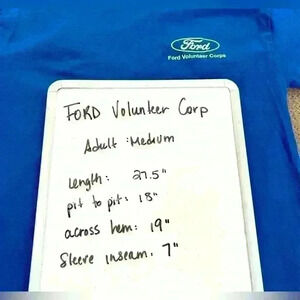 Ford
Ford Volunteer Corps
FORD Volunteer Corp
Adult : Medium
length: 27.5"
pit to pit: 18"
across hem: 19"
Sleeve inseam: 7"